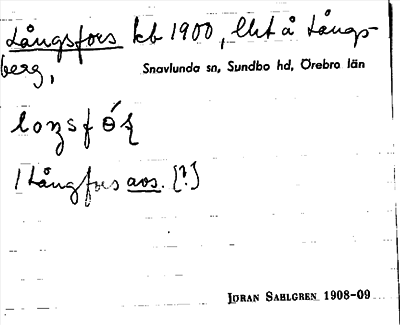 Långsfors kb 1900, lht å Långs-
berg,
Snavlunda sn, Sundbo hd, Örebro län
i Långfors aos. [?]
JÖRAN SAHLGREN 1908-09